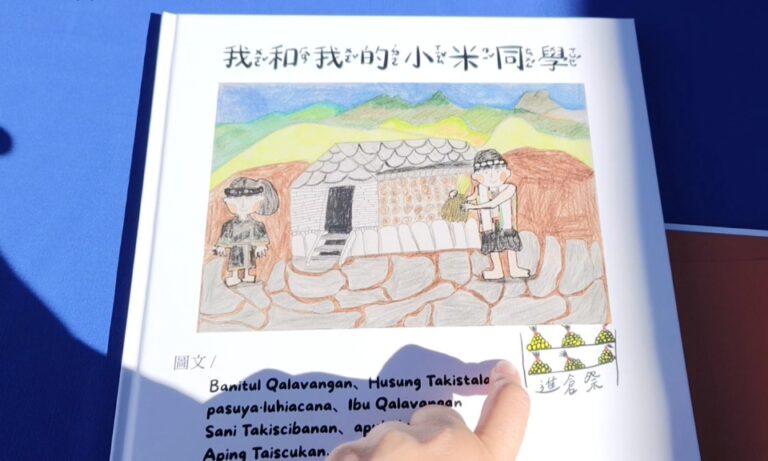 我和我的小米同學
圖文/
進倉祭
Banitul Qalavangan、Husung Takistala
pasuya·luhiacana、Ibu Qalavangan
Sani Takiscibanan、
Aping Taiscukan.